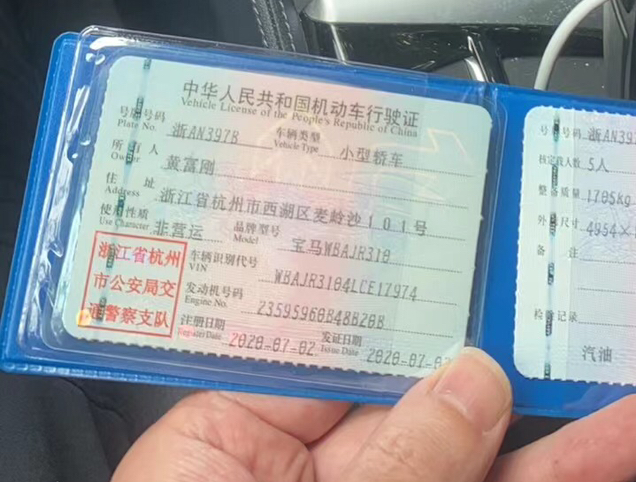 中华人民共和国机动车行驶证
Vehicle License of the People's Republic of China
号牌号码 浙AN397B 车辆类型 小型轿车
Plate No. Vehicle Type
所有人 黄富刚
Owner
住址 浙江省杭州市西湖区麦岭沙101号
Address
使用性质 非营运 品牌型号 宝马WBAJR310
Use Character Model
浙江省杭州
市公安局交
通警察支队
车辆识别代号 WBAJR3104LCE17974
VIN
发动机号码 23595960B48B20B
Engine No.
注册日期 2020-07-02 发证日期 2020-07-02
Register Date Issue Date
号牌号码 浙AN397
核定载人数 5人
整备质量 1705kg
外廓尺寸 4954×
备注
检验记录
汽油